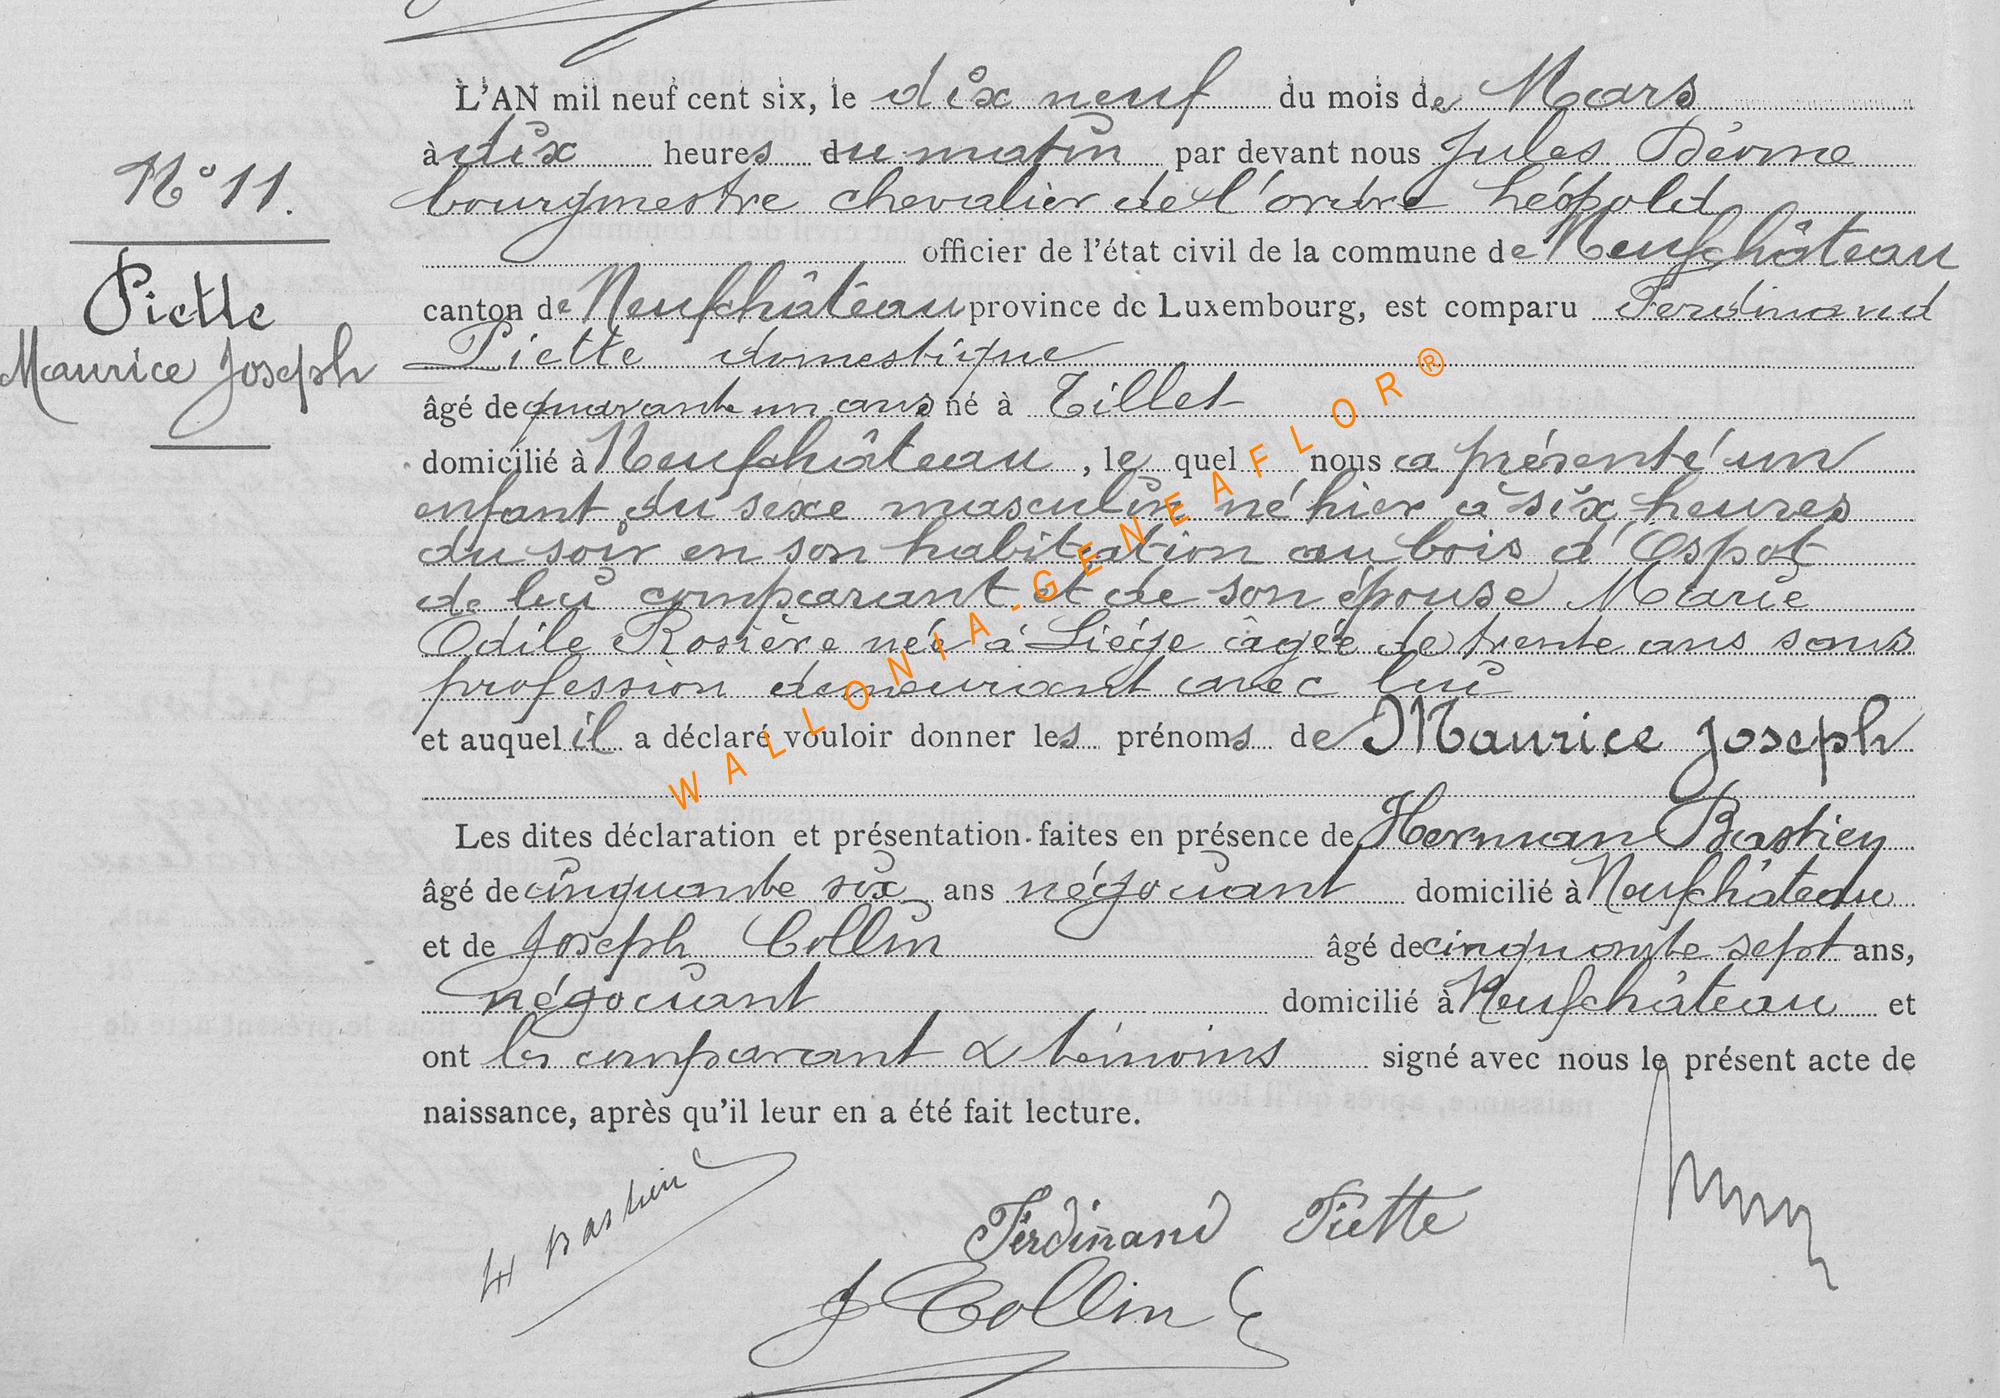 N° 11.
Piette
Maurice Joseph
L'AN mil neuf cent six, le dix neuf du mois de Mars
à dix heures du matin par devant nous Jules
bourgmestre chevalier de l'ordre Léopold
officier de l'état civil de la commune de Neufchâteau
canton de Neufchâteau province de Luxembourg, est comparu Ferdinand
Piette domestique
âgé de quarante un ans né à Tillet
domicilié à Neufchâteau, le quel nous a présenté un
enfant du sexe masculin né hier à six heures
du soir en son habitation au bois d'Ospot
de lui comparant et de son épouse Marie
Odile Rosière née à Liége âgée de trente ans sans
profession demeurant avec lui
et auquel il a déclaré vouloir donner les prénoms de Maurice Joseph
Les dites déclaration et présentation faites en présence de Herman Bastien
âgé de cinquante six ans négociant domicilié à Neufchâteau
et de Joseph Collin âgé de cinquante sept ans,
négociant domicilié à Neufchâteau et
ont les comparant & témoins signé avec nous le présent acte de
naissance, après qu'il leur en a été fait lecture.
H Bastien
Ferdinand Piette
J Collin
WALLONIA-GENEAFLOR®